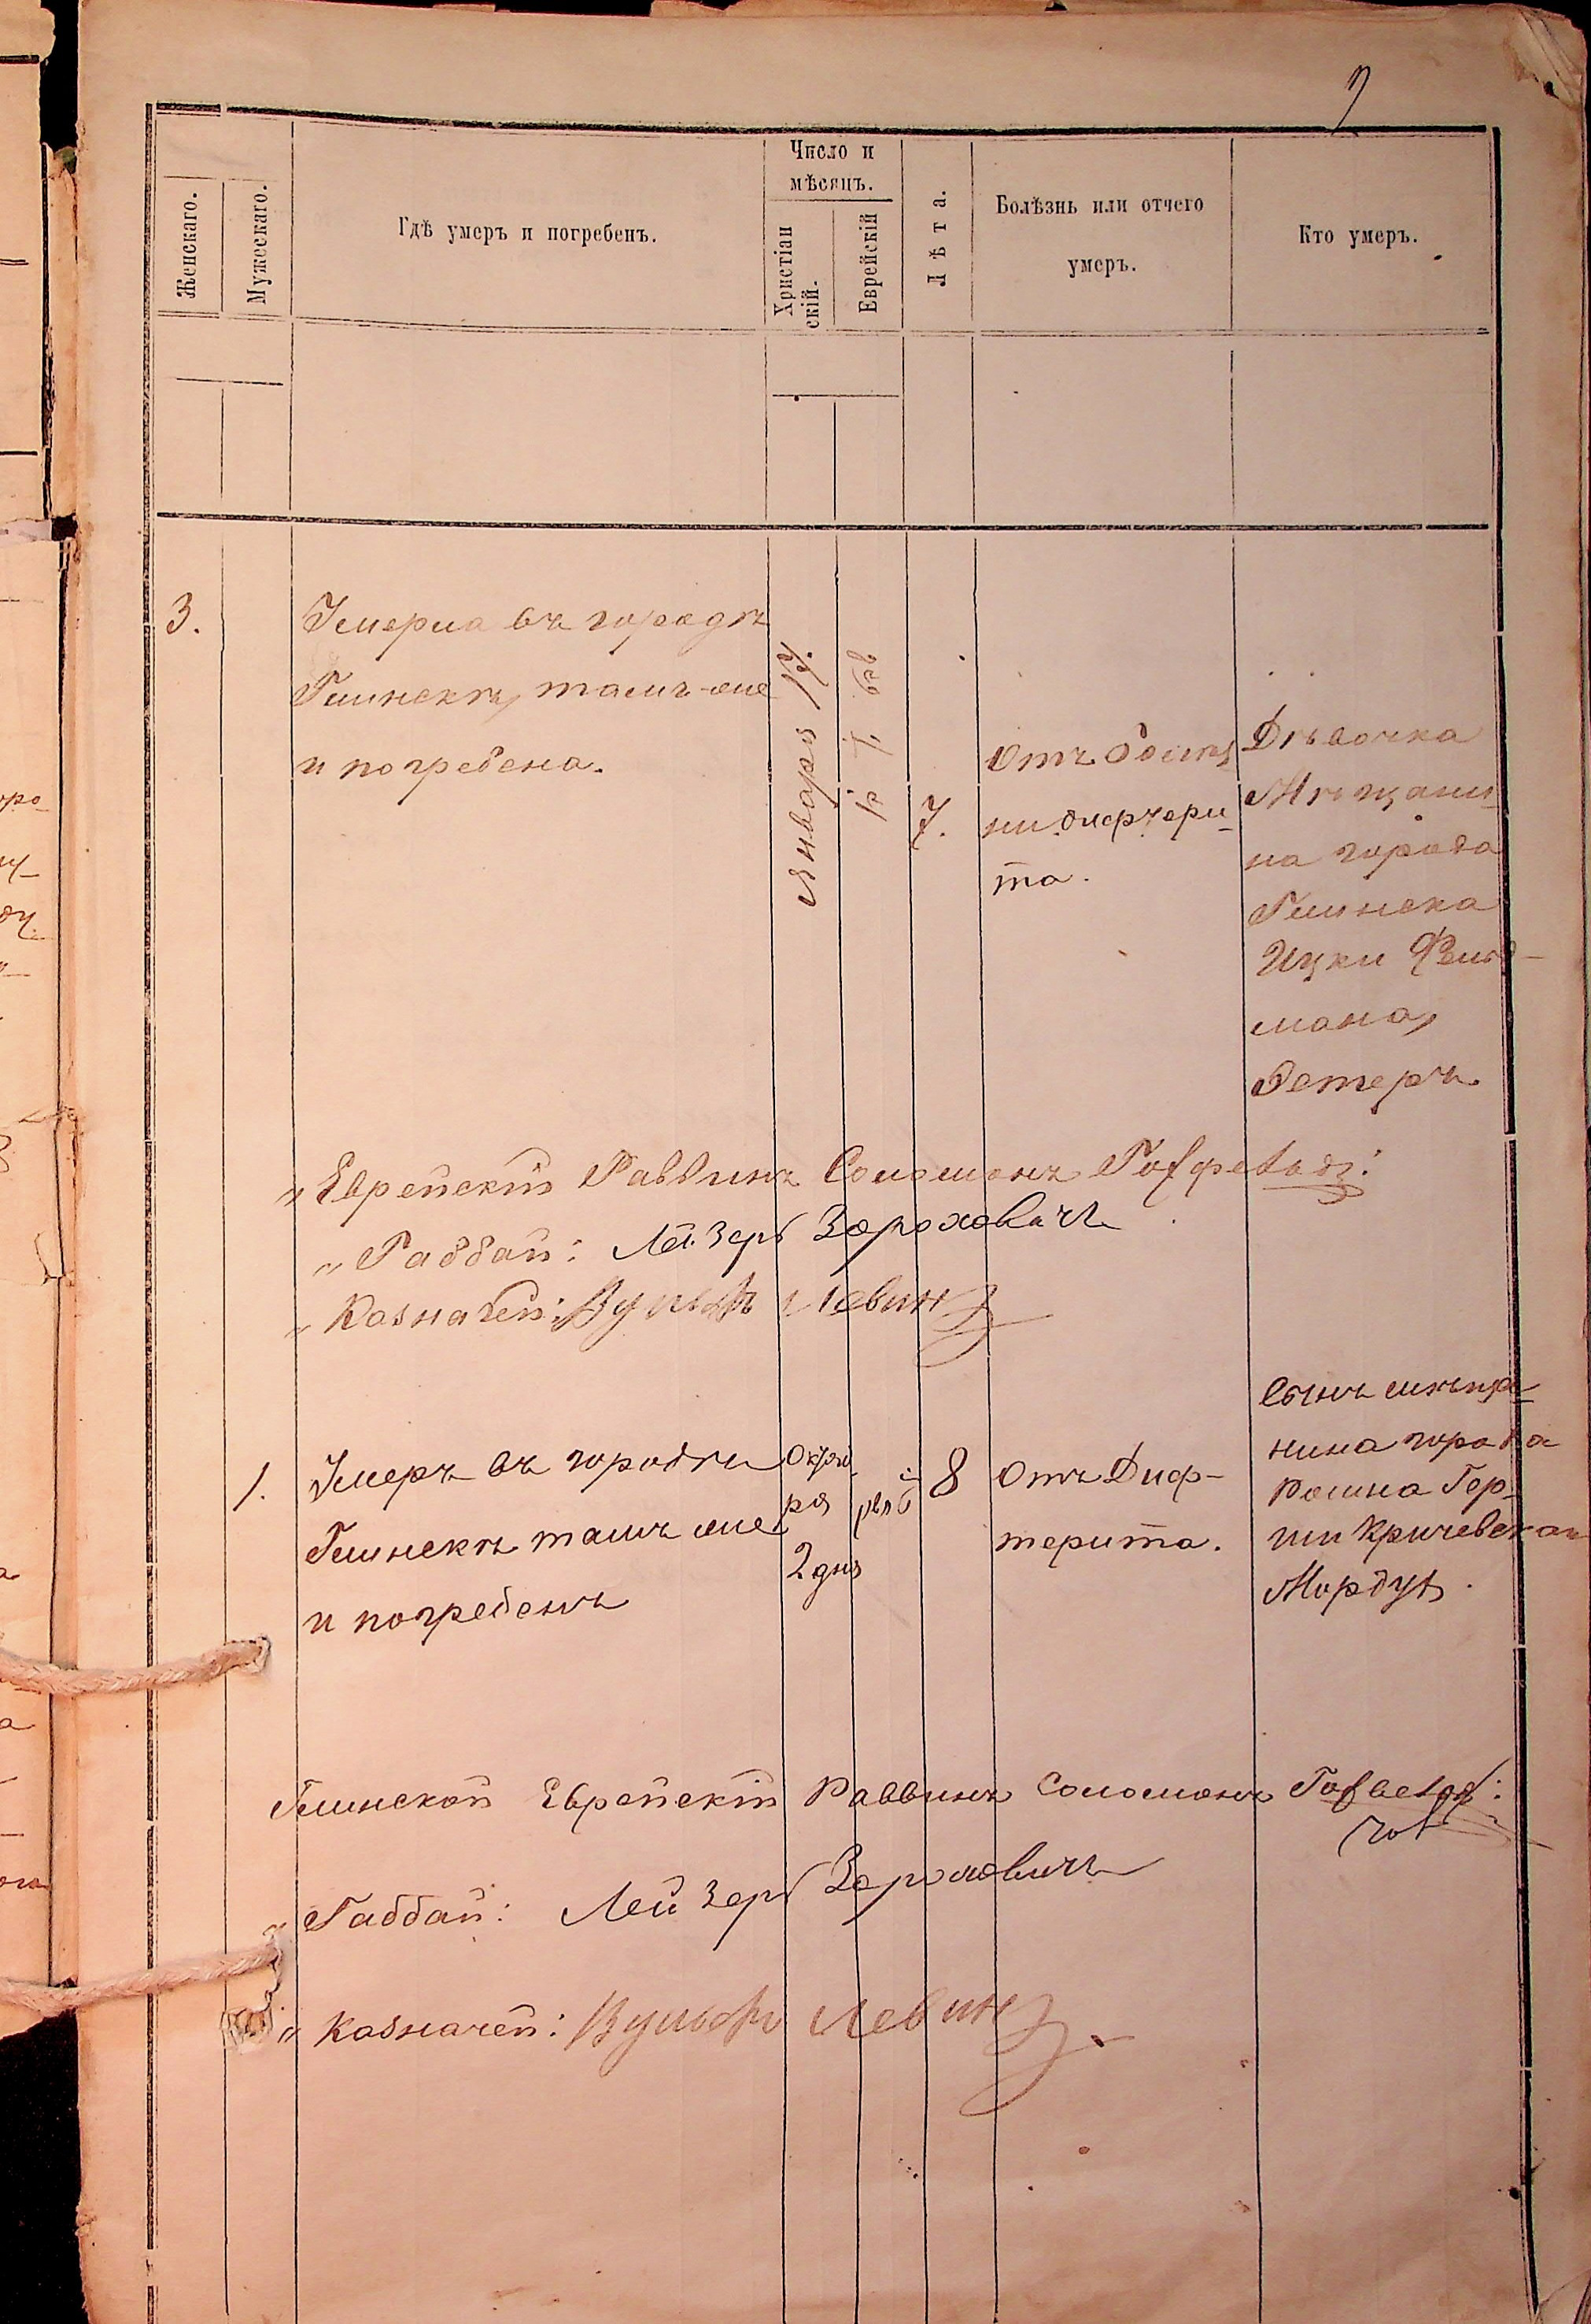 7
Женскаго.
Мужескаго.
Гдѣ умеръ и погребенъ.
Число и
мѣсяцъ.
Христіан
скій.
Еврейскій
Лѣта.
Болѣзнь или отчего
умеръ.
Кто умеръ.
3.
Умерла въ городѣ
Глинскѣ, тамъ-же
и погребена.
Января 17.
7.
Отъ болѣз
ни дифтери-
та.
Дѣвочка
Мѣщани-
на города
Глинска
Ицки Фельд-
мана,
Эстеръ.
„ Еврейскій Раввинъ Соломонъ
„ Габбай: Лейзеръ Зороховичъ
„ Казначей: Вульфъ Левинъ
1.
Умеръ въ городѣ
Глинскѣ тамъ же
и погребенъ
Октяб
ря
2 дня
8
Отъ Диф-
терита.
Сынъ мѣща-
нина города
Ромна Гер-
ши Кричевскаго
Мордух
Глинской Еврейскій Раввинъ Соломонъ
„ Габбай: Лейзеръ Зороховичъ
„ Казначей: Вульфъ Левинъ.